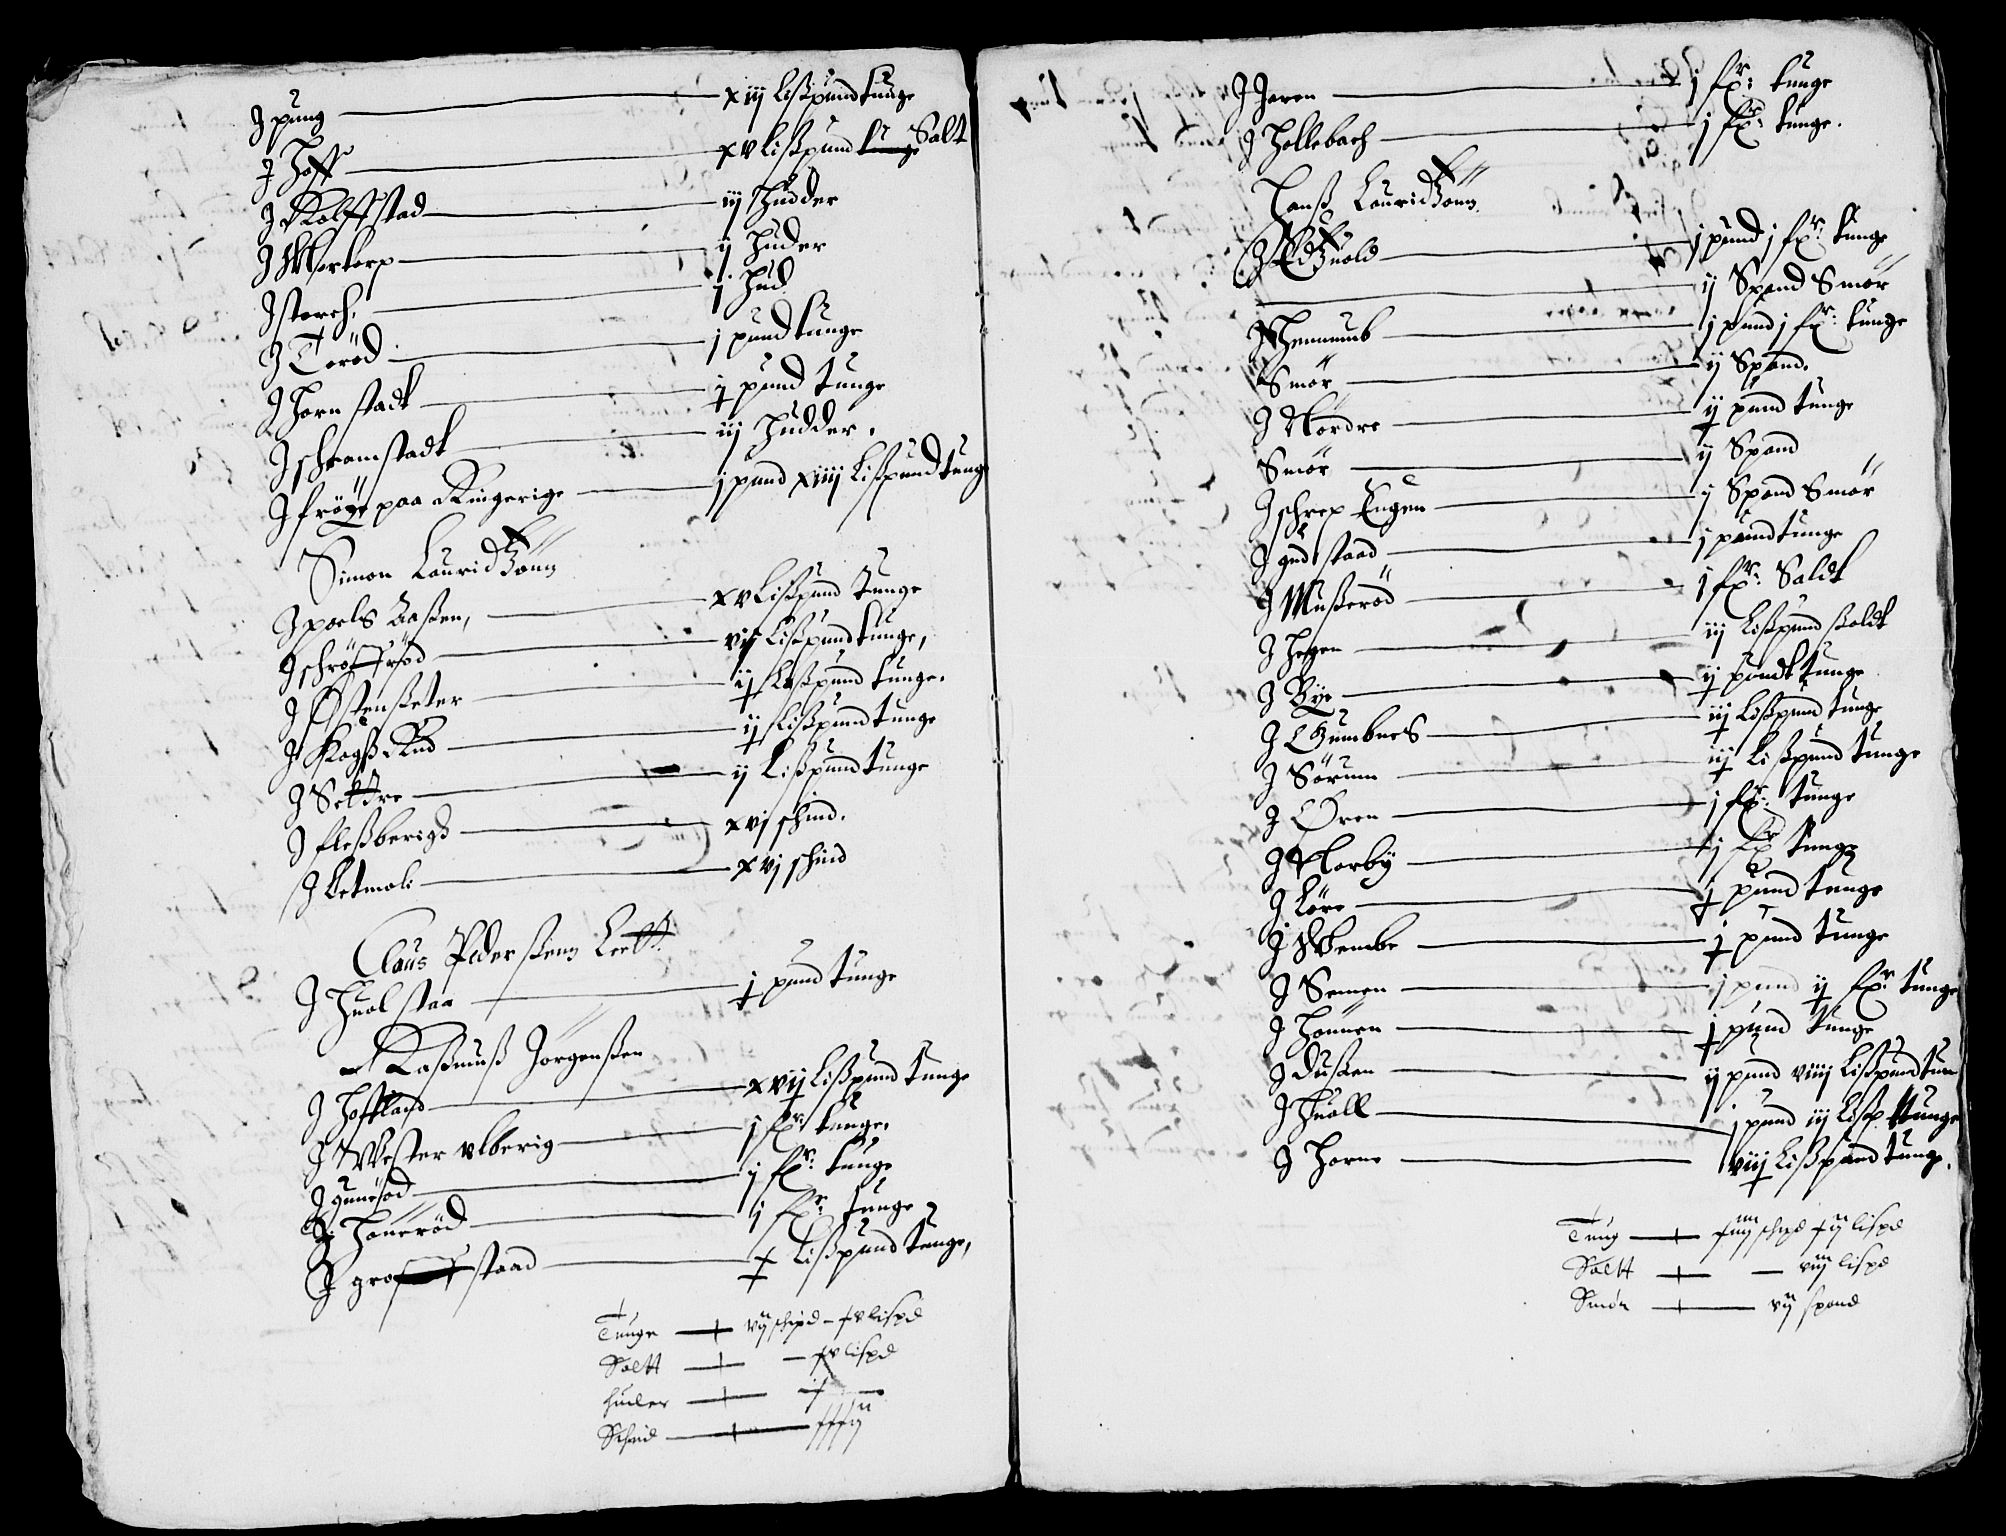 J pung — xiij Lißpund tunge
J Hoff — xv Lißpund Salt
J Rolffstad — iij Hudder
J Morkorp — ij Huder
J storch — j Hud
J Toröd — j pund tunge
J Hornstadt — j pund tunge
J schramstadt — iij Hudder.
J fröge paa Ringerige — j pund xiiij Lißpund tung
Simon Lauridßönn
J poels Aaßen, — xv Lißpund tunge
J röd — vij Lißpund tunge,
J Østenßeter — ij Lißpund tunge.
J Rud — ij Lißpund tunge
J Settre — ij Lißpund tunge
J fleßberigd — xvj schind.
J Letmoli — xvj schind
Claus Pederßenn Lett
J Huolstaa — j pund tunge
Raßmuß Jorgenßen
J Hoffland — xvij Lißpund tunge
J Wester vlberig — j fr: tunge,
J gunesod — j fr: tunge
J Haneröd — j fr: tunge
J gro staad — x Lißpund tunge,
Tunge — vij schipd – xv lispd
Saltt — xv lispd
huder
Schind
J Joren — j fr: tunge
J Hollebach — j fr: tunge.
Hanß Lauridßönn
J Edßuold — j pund j fr: tunge
— ij Spand Smör
J Hennumb — j pund j fr: tunge
Smör — ij Spand.
J Nordre — ij pund tunge
Smör — ij Spand
J Engen — ij Spand Smör
J gudstaad — j pund tunge
J Mußeröd — j fr: Saldt
J Hegen — iij Lißpund ßaldt
J Bye — ij pundt tunge
J Gumbnes — iij Lißpund tunge
J Sörum — iij Lißpund tunge
J Oren — j fr: tunge
J Norby — j fr tunge
J Löre — j pund tunge
J Wembe — j pund tunge
J Semen — j pund ij fr tunge
J Hönnen — j pund tunge
J Dusen — ij pund viiij Lißpund tun
J Huall — j pund iij Lisp tunge
J Horne — viij Lißpund tunge.
Tung — schipd xij lispd
Saltt — viij lispd
Smör — vij spand